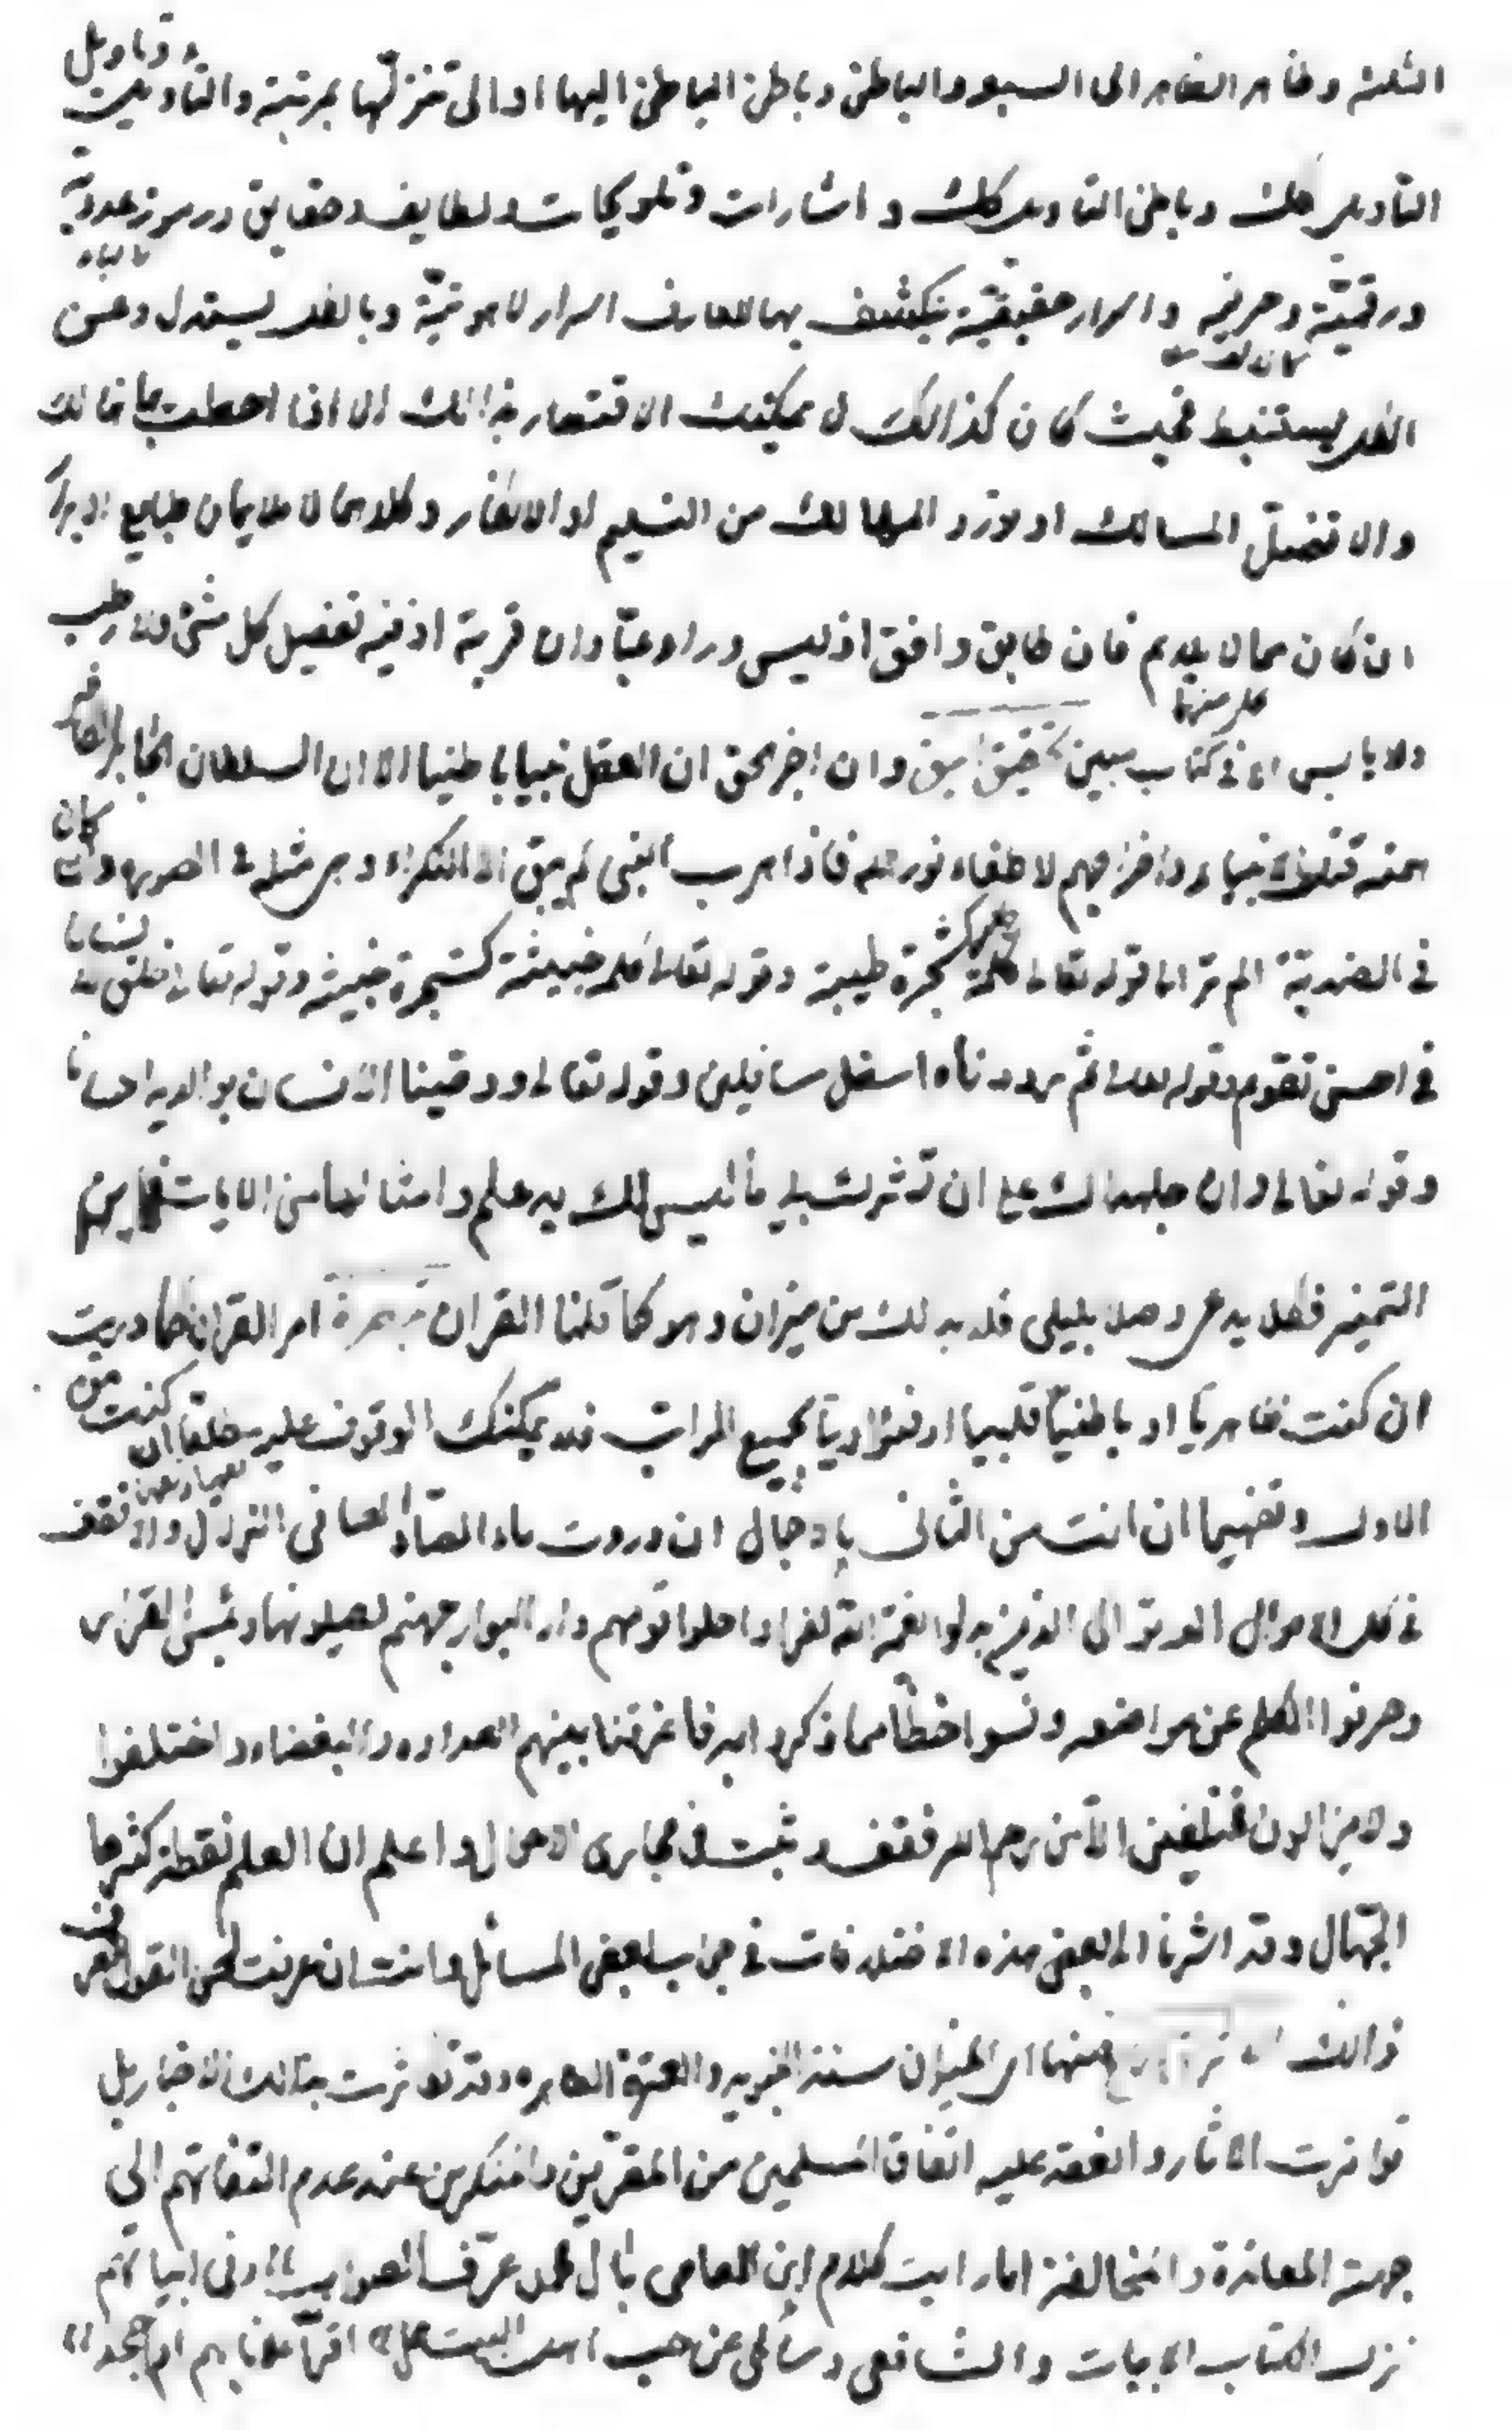 الثلثة وظاهر الظاهر الى السبع والباطن وباطن الباطن اليها او الى تنزلها بمرتبة والتأويل وتاويل
التأويل كك وباطن التأويل كك و اشارات و تلويحات و لطايف و حقايق و رموز عددية
ورقمية وحرفية واسرار حقيقية ينكشف بها للعارف اسرار لاهوتية وبالظهر يستدل وعن
يستنبط فحيث كان كذالك لا يمكنك الاقتصار بذالك الا اذا احطت بما هنالك
والا تضل المسالك او تورد المهالك من التسليم او الانكار وكلاهما لا يلايمان طبايع
ان كان مما لا يلايم فان طابق وافق اذ ليس وراء عبادان قرية اذ فيه تفصيل كل شئ ولا رطب
ولا يابس الا فى كتاب مبين وان اخر الحق ان العقل نبيا باطنيا الا ان السلطان الجابر
همته قتل الانبياء واخراجهم لاطفاء نور الله فاذا هرب النبى لم يبق الا النكراء وهى مثله فى الصورة وان كان
فى الضدية الم تر الى قوله تعالى كلمة طيبة كشجرة طيبة وقوله تعالى كلمة خبيثة كشجرة خبيثة وقوله تعالى خلق الانسان
فى احسن تقويم وقوله تعالى ثم رددناه اسفل سافلين وقوله تعالى ووصينا الانسان بوالديه احسانا
وقوله تعالى وان جاهداك على ان تشرك بى ما ليس لك به علم وامثالها من الايات فاين
التمييز فكل يدعى وصلا بليلى فلا بد لك من ميزان وهو كما قلنا القران امر القران كما دريت
ان كنت ظاهريا او باطنيا قلبيا او فؤاديا بجميع المراتب فلا يمكنك الوقوف عليه مطلقا ان كنت من
الاول وتفهيما ان انت من الثانى ان وردت ماء الصاد الصافى الزلال والا تقف
فى كل الاحوال الم تر الى الذين بدلوا نعمة الله كفرا واحلوا قومهم دار البوار جهنم يصلونها وبئس القرار
وحرفوا الكلم عن مواضعه ونسوا حظا مما ذكروا به فاغرينا بينهم العداوة والبغضاء واختلفوا
ولا يزالون مختلفين الا من رحم الله فقف وتثبت فى مجارى الاحوال واعلم ان العلم نقطة كثرها
الجهال وقد اشرنا الى بعض هذه الاختلافات فى جواب بعض المسائل وانت ان عرفت لحن القول
ذالك منها اى الميزان سنة النبوية والعترة الطاهرة وقد تواترت بذالك الاخبار بل
تواترت الاثار وانعقد عليه اتفاق المسلمين من المقرين والمنكرين عند عدم التفاتهم الى
جهة المعاندة والمخالفة اما رايت كلام ابن العاص بآل محمد عرف الصواب وفى ابياتهم
نزل الكتاب الابيات والشافعى وسائلى عن حب اهل البيت هل اقر اعلانا بهم ام اجحد